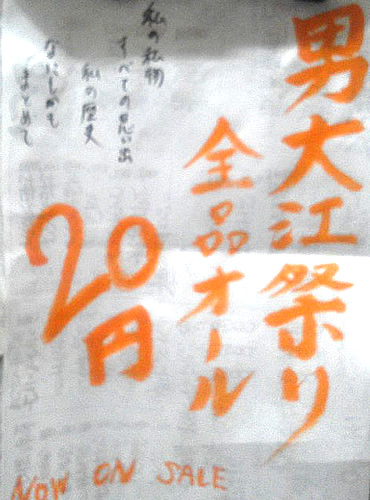 男大江祭り
全品オール
20円
私の私物
すべての思い出
私の歴史
なにもかも
まとめて
NOW ON SALE